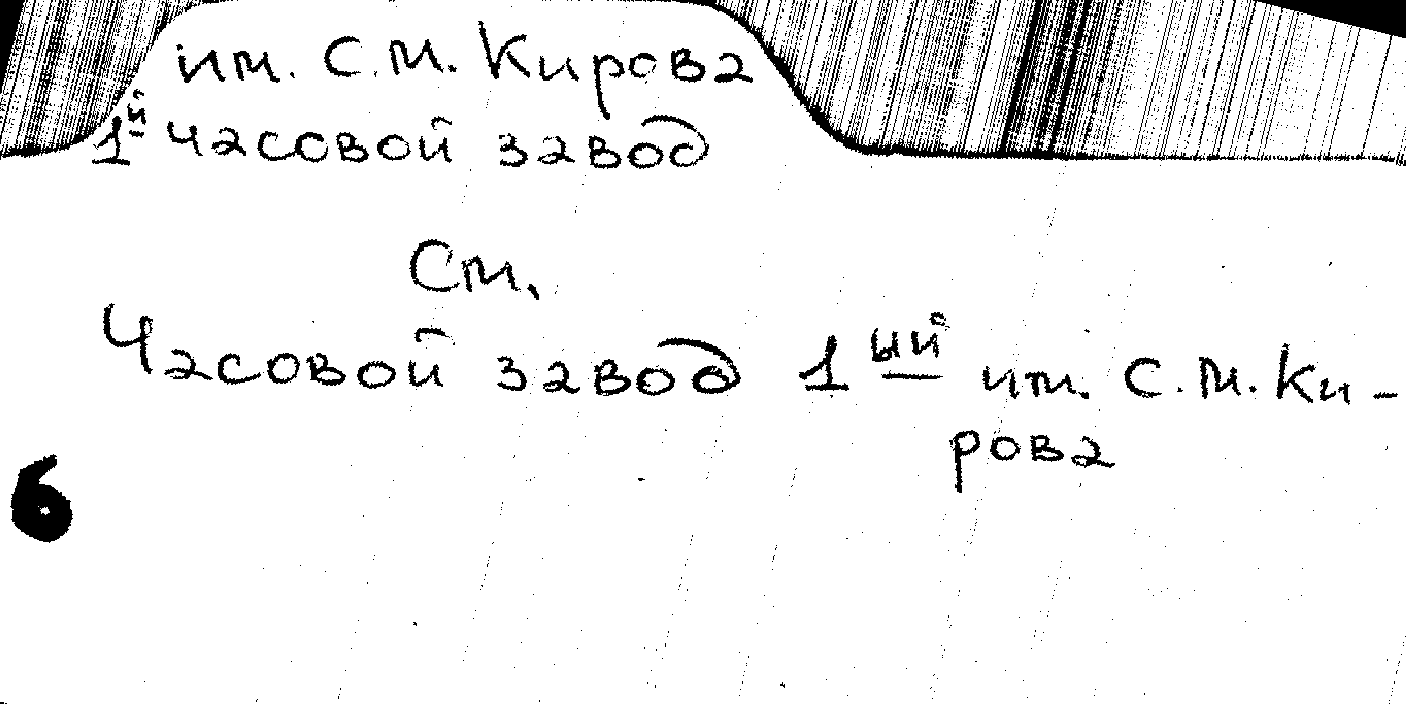 им. С.М. Кирова
1й часовой завод
См.
Часовой завод 1ый им. С.М. Ки-
рова
6